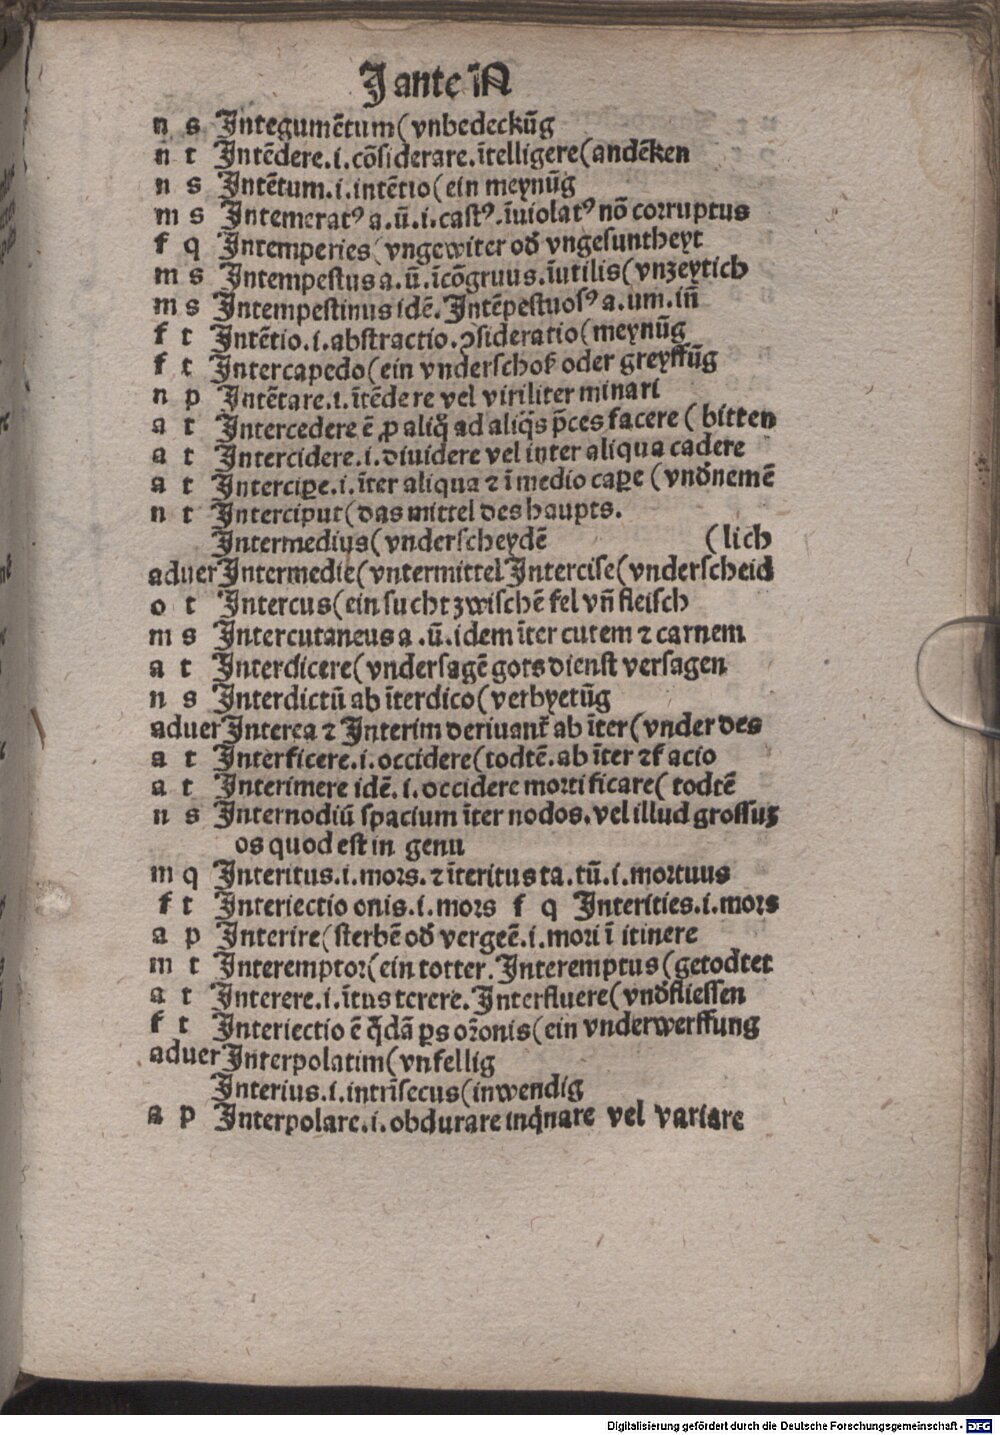 I ante iN
n s Integumētum(vnbedeckūg
n t Intēdere.i.cōsiderare.ītelligere(andēken
n s Intētum.i.intētio(ein meynūg
m s Intemeratꝰ a.ū.i.castꝰ.īuiolatꝰ nō corruptus
f q Intemperies(vngewiter oď vngesuntheyt
m s Intempestus a.ū.īcōgruus.īutilis(vnzeytich
m s Intempestinus idē.Intēpestuosꝰ a.um.in̄
f t Intētio.i.abstractio.ↄsideratio(meynūg
f t Intercapedo(ein vnderschok oder greyffūg
n p Intētare.i.ītēdere vel viriliter minari
a t Intercedere ē ꝓ aliq̊ ad aliq̊s p̄ces facere(bitten
a t Intercidere.i.diuidere vel inter aliqua cadere
a t Interciꝑe.i.īter aliqua ⁊ ī medio caꝑe(vnďnemē
n t Interciput(das mittel des haupts.
Intermedius(vnderscheydē (lich
aduer Intermedie(vntermittel Intercise(vnderscheid
o t Intercus(ein sucht zwischē fel vn̄ fleisch
m s Intercutaneus a.ū.idem īter cutem ⁊ carnem
a t Interdicere(vndersagē gots dienst versagen
n s Interdictū ab īterdico(verbyetūg
aduer Interea ⁊ Interim deriuant̄ ab īter(vnder des
a t Interficere.i.occidere(todtē.ab īter ⁊facio
a t Interimere idē.i.occidere mortificare(todtē
n s Internodiū spacium īter nodos.vel illud grossuz
os quod est in genu
m q Interitus.i.mors.⁊ īteritus ta.tū.i.mortuus
f t Interiectio onis.i.mors f q Interities.i.mors
a p Interire(sterbē oď vergeē.i.mori ī itinere
m t Interemptor(ein totter.Interemptus(getodtet
a t Interere.i.ītus terere.Interfluere(vnďfliessen
f t Interiectio ē q̄dā ꝑs or̄onis(ein vnderwerffung
aduer Interpolatim(vnfellig
Interius.i.intrīsecus(inwendig
a p Interpolare.i.obdurare inq̇nare vel variare
Digitalisierung gefördert durch die Deutsche Forschungsgemeinschaft - DFG